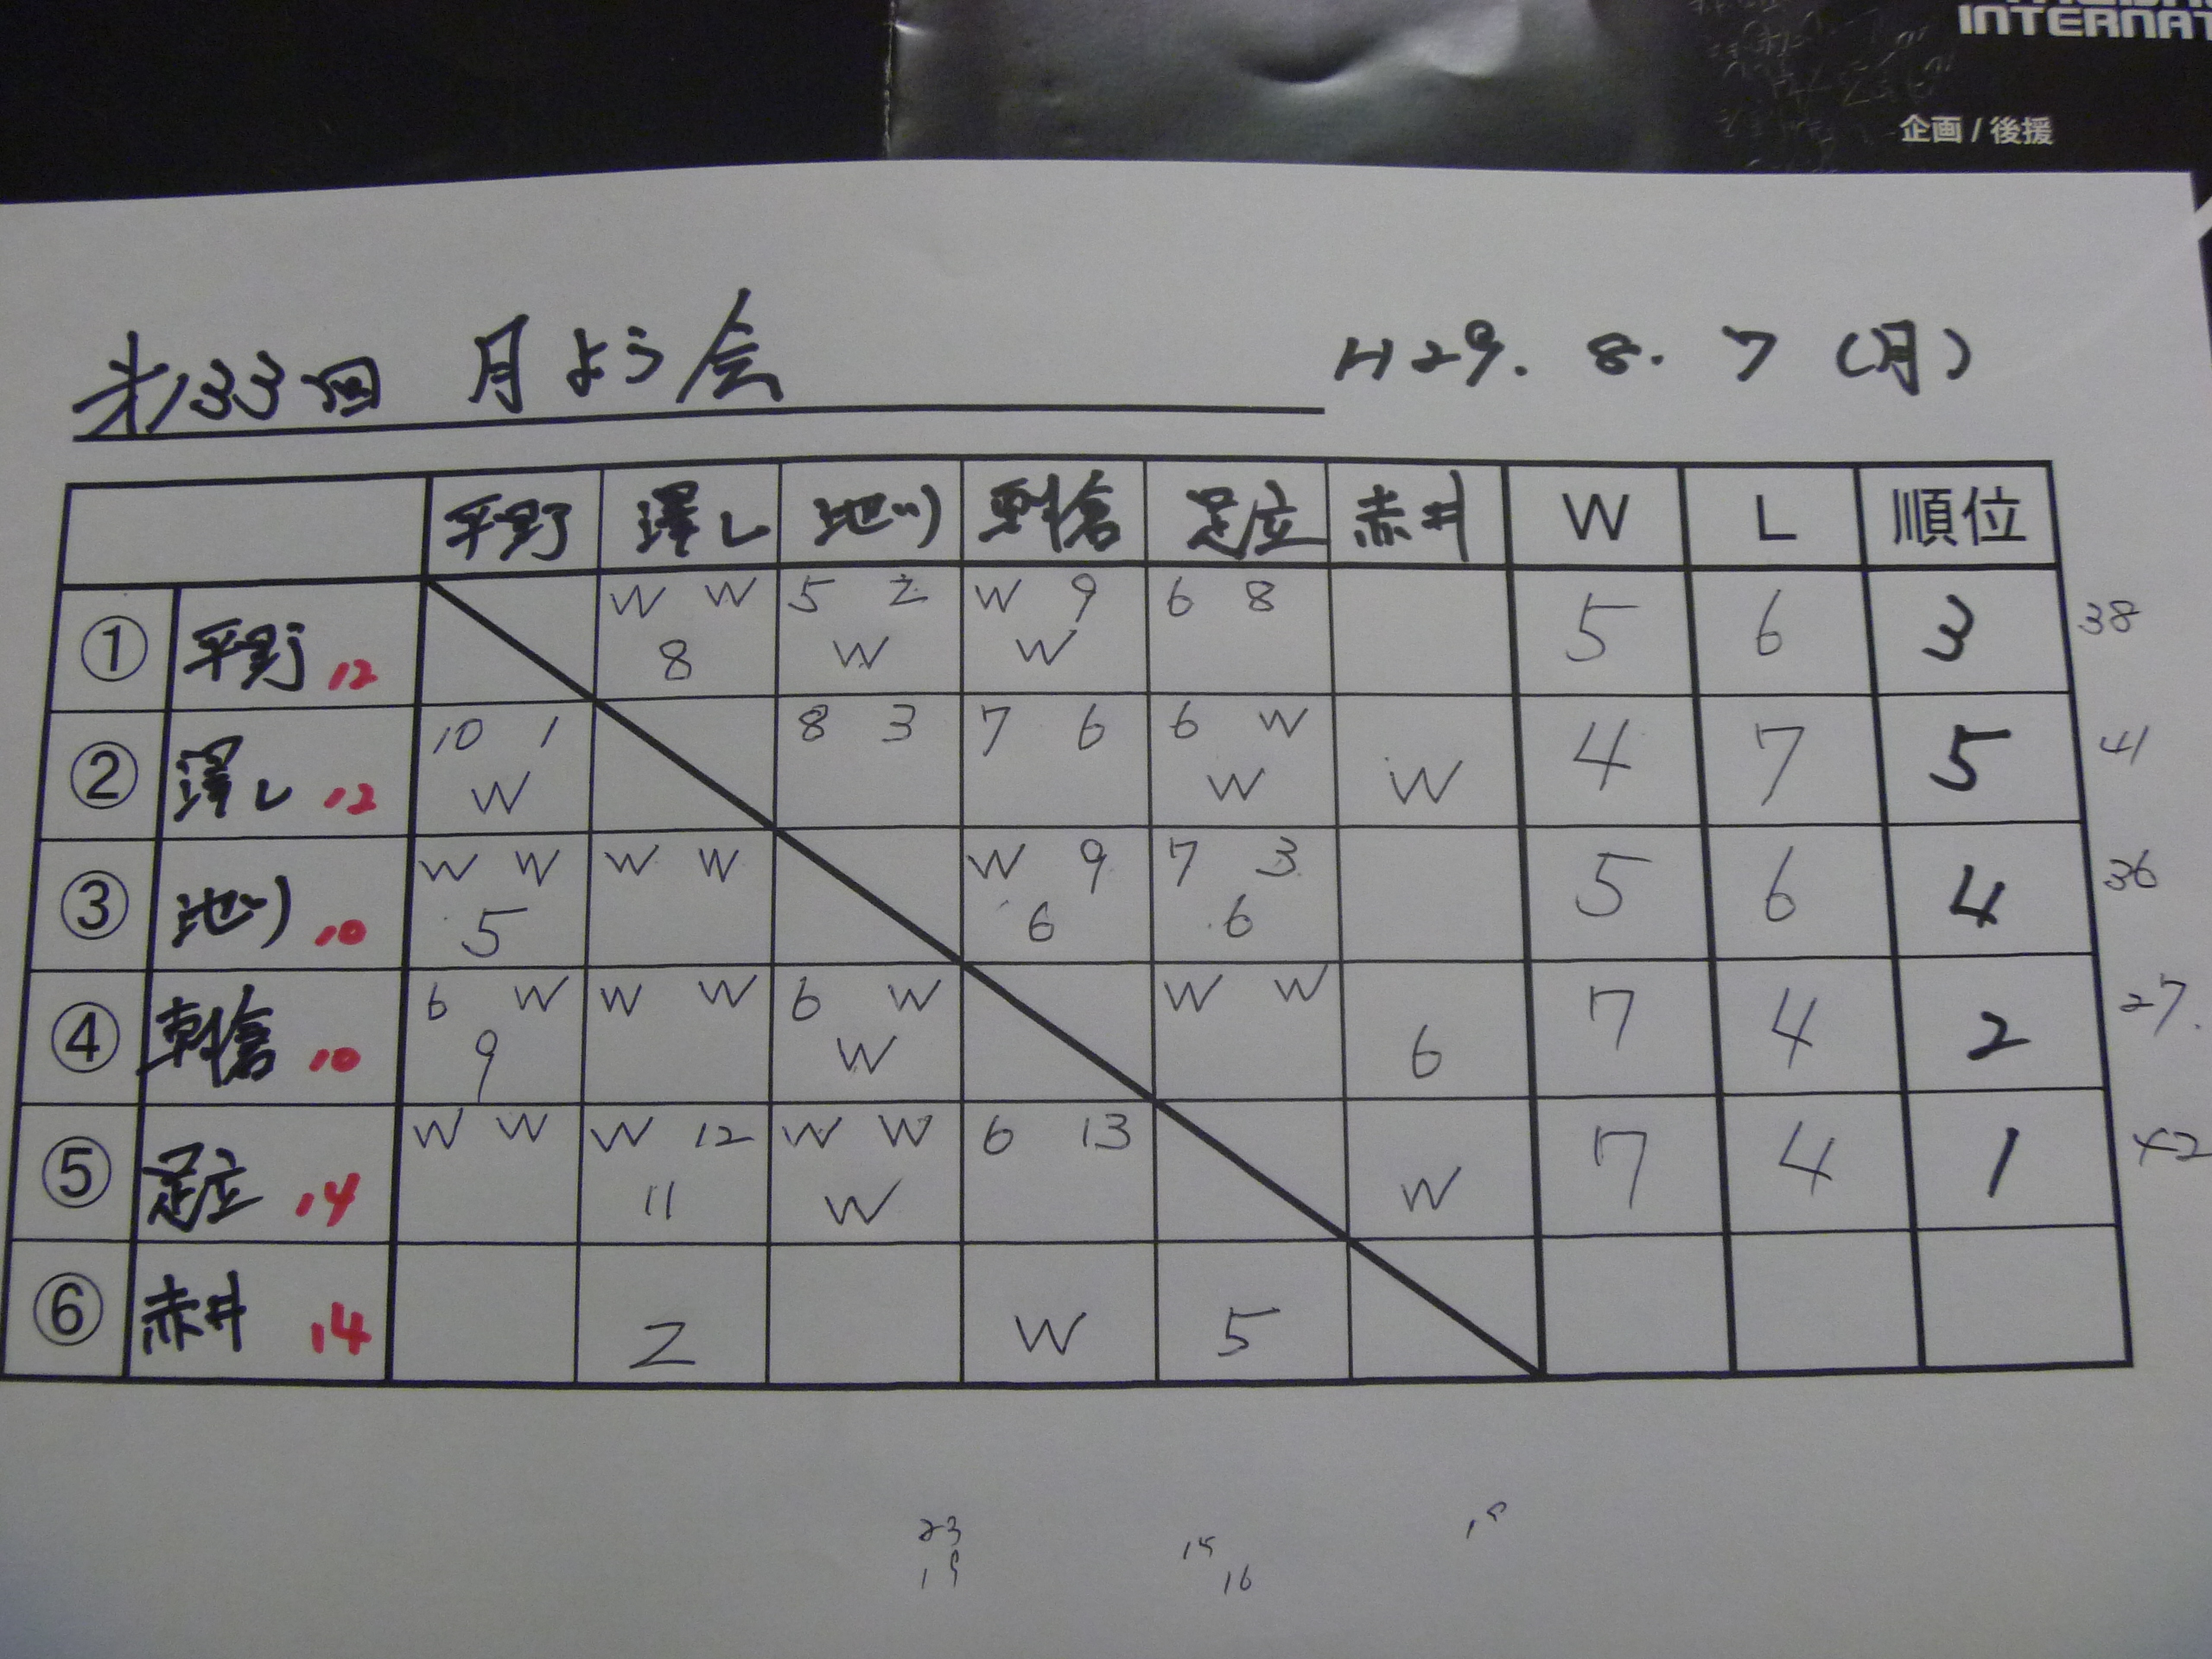 INTERNAT
企画 / 後援
第133回 月よう会 H29. 8. 7 (月)
平野 澤し 池川 鶴倉 足立 赤井 W L 順位
① 平野 12 W W 8 5 2 W W 9 W 6 8 5 6 3 38
② 澤し 12 10 1 W 8 3 7 6 6 W W W 4 7 5 41
③ 池川 10 W W 5 W W W 9 6 7 3 6 5 6 4 36
④ 10 6 W 9 W W 6 W W W W 6 7 4 2 27.
⑤ 足立 14 W W W 12 11 W W W 6 13 W 7 4 1 42
⑥ 赤井 14 2 W 5
23
19
15
16